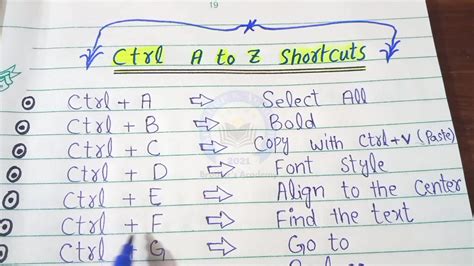 19
Ctrl A to Z Shortcuts
Ctrl + A ⇨ Select All
Ctrl + B ⇨ Bold
Ctrl + C ⇨ Copy with Ctrl+V (Paste)
Ctrl + D ⇨ Font Style
Ctrl + E ⇨ Align to the Center
Ctrl + F ⇨ Find the text
Ctrl + G ⇨ Go to
2021